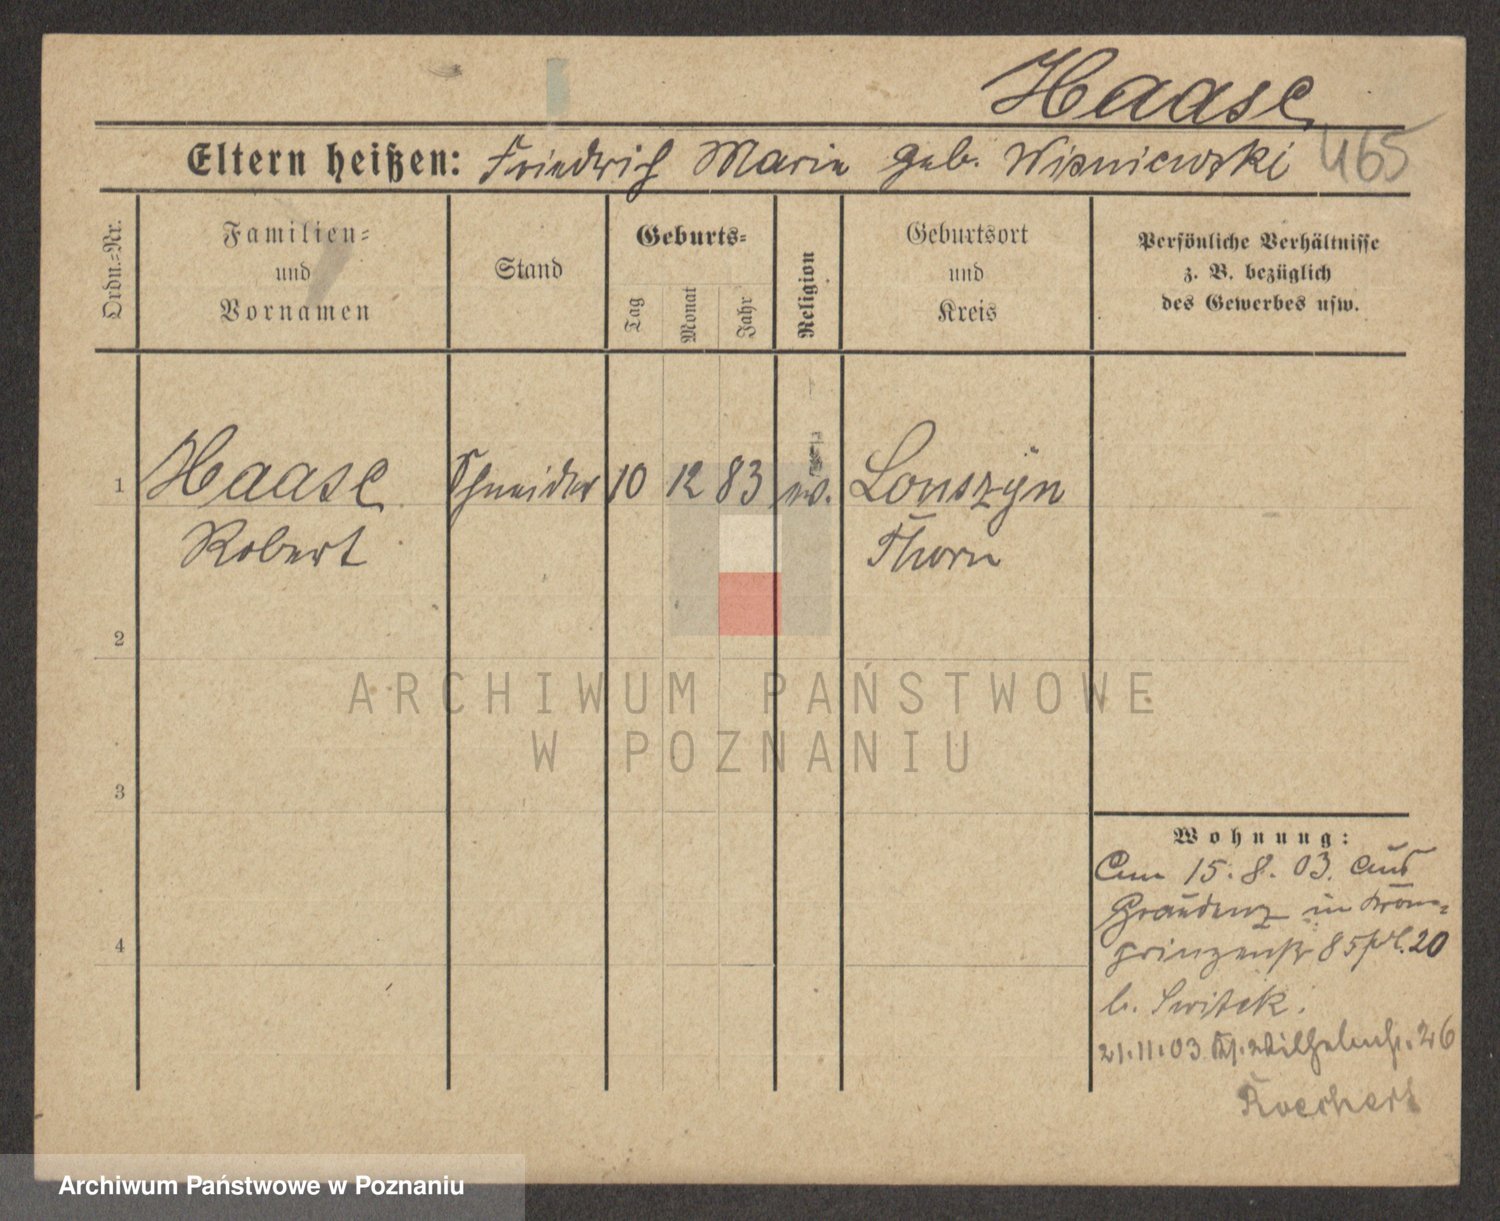 Haase
465
Eltern heißen: Friedrich Marie geb. Wisniewski
Ordn.-Nr.
Familien-
und
Vornamen
Stand
Geburts-
Tag
Monat
Jahr
Religion
Geburtsort
und
Kreis
Persönliche Verhältnisse
z. B. bezüglich
des Gewerbes usw.
1
Haase Schneider 10 12 83 ev. Lonszyn
Robert Thorn
2
ARCHIWUM PAŃSTWOWE
W POZNANIU
3
Wohnung:
Am 15.8.03. aus
Graudenz in Kron-
prinzenstr 85 20
b. Switek.
4
21.11.03 Wilhelmstr. 26
Koechert
Archiwum Państwowe w Poznaniu